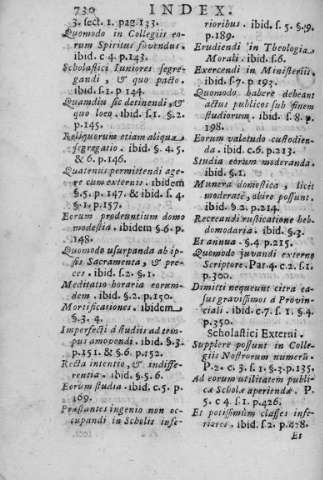 730 INDEX.
3. sect. 1. pag. 133.
Quomodo in Collegiis eo-
rum Spiritus fovendus.
ibid. c 4. p. 143.
Scholastici Iuniores segre-
gandi, & quo pacto.
ibid. s.1. p 144.
Quamdiu sic detinendi, &
quo loco. ibid. s.1. §.2.
p.145.
Reliquorum etiam aliqua
segregatio. ibid. §. 4. 5.
& 6. p.146.
Quatenus permittendi age-
re cum externis. ibidem
§.5. p.147. & ibid. s.4.
§.1. p.157.
Eorum prodeuntium domo
modestia. ibidem §.6. p.
148.
Quomodo usurpanda ab ip-
sis Sacramenta, & pre-
ces. ibid. s.2. §.1.
Meditatio horaria eorum-
dem. ibid. §.2. p.150.
Mortificationes. ibidem
§.3. 4.
Imperfecti à studiis ad tem-
pus amovendi. ibid. §.3.
p.151. & §.6. p.152.
Recta intentio, & indiffe-
rentia. ibid. §.5. 6.
Eorum studia. ibid. c.5. p.
169.
Præstantes ingenio non oc-
cupandi in Scholis infe-
rioribus. ibid. s. 5. §.9.
p.189.
Erudiendi in Theologia
Morali. ibid. s.6.
Exercendi in Ministeriis.
ibid. s.7. p. 192.
Quomodo habere debeant
actus publicos sub finem
studiorum. ibid. s.8. p.
198.
Eorum valetudo custodien-
da. ibid. c.6. p.213.
Studia eorum moderanda.
ibid. §.1.
Munera domestica, licet
moderatè, obire possunt.
ibid. §.2. p.214.
Recreandi rusticatione heb-
domodaria. ibid. §.3.
Et annua. §.4. p.215.
Quomodo juvandi externo
Scriptore. Par. 4. c.2. s.1.
p.300.
Dimitti nequeunt citra ca-
sus gravissimos à Provin-
ciali. ibid. c.7. s.1. §.4.
p.350.
Scholastici Externi.
Supplere possunt in Colle-
giis Nostrorum numerũ.
P.2. c. 3. s. 1. §.3. p.135.
Ad eorum utilitatem publi-
cæ Scholæ aperiendæ. P.
5. c 4. s.1. p.426.
Et potissimùm classes infe-
riores. ibid. s.2. p.428.
Et